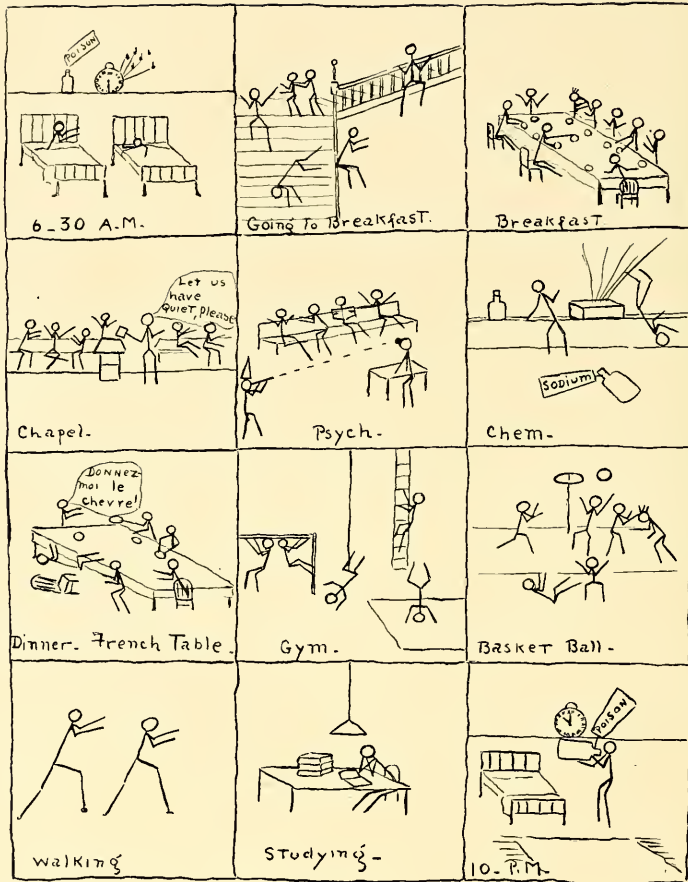 POISON
6-30 A.M.
Going To Breakfast.
Breakfast
Let us
have
Quiet, please
Chapel-
Psych-
SODIUM
Chem-
Donnez
moi le
chevre!
Dinner- French Table-
Gym-
Basket Ball-
Walking
Studying-
POISON
10- P.M-